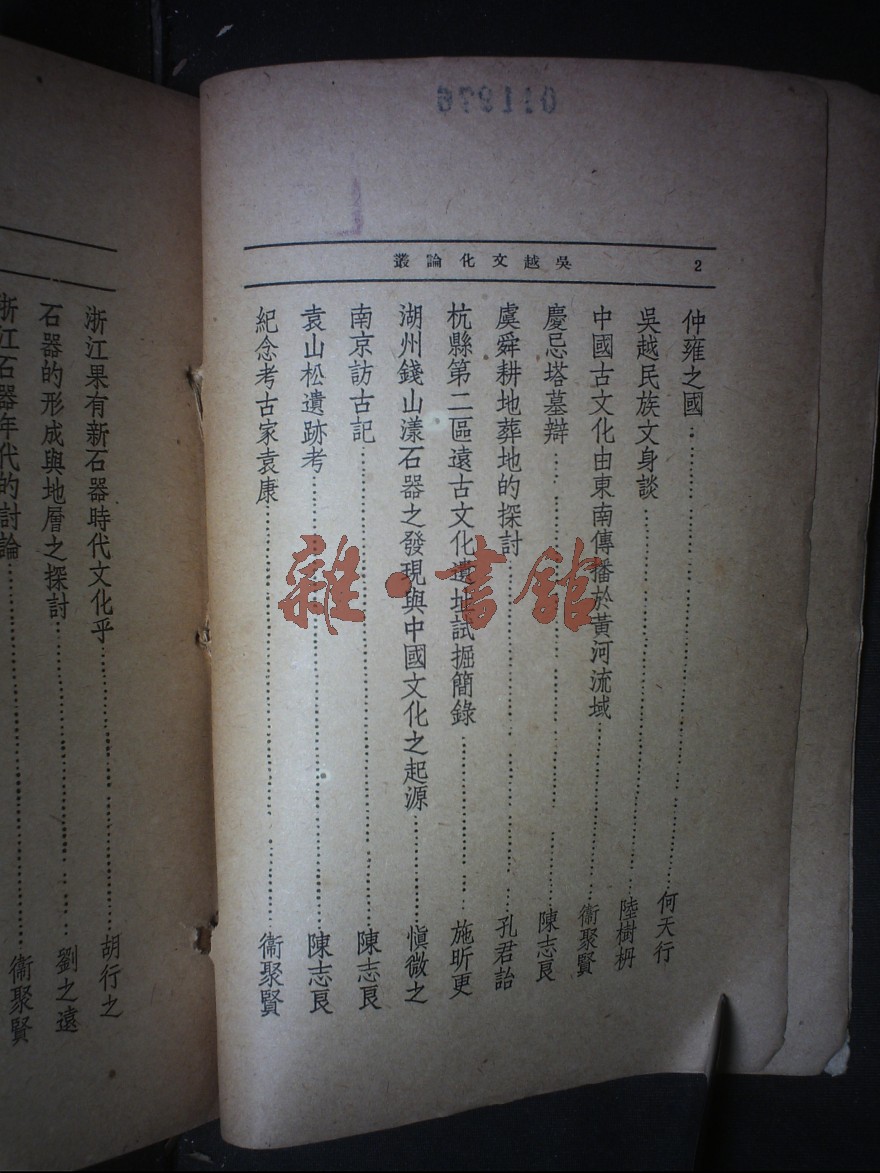 011976
2
吳越文化論叢
仲雍之國……何天行
吳越民族文身談……陸樹枬
中國古文化由東南傳播於黃河流域……衞聚賢
慶忌塔墓辯……陳志良
虞舜耕地葬地的探討……孔君詒
杭縣第二區遠古文化遺址試掘簡錄……施昕更
湖州錢山漾石器之發現與中國文化之起源……愼微之
南京訪古記……陳志良
袁山松遺跡考……陳志良
紀念考古家袁康……衞聚賢
雜·書館
浙江果有新石器時代文化乎……胡行之
石器的形成與地層之探討……劉之遠
浙江石器年代的討論……衞聚賢